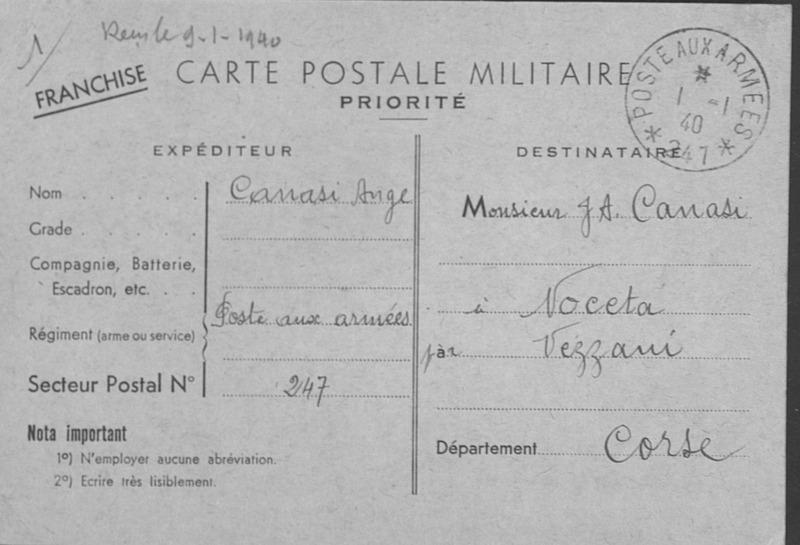 1
Remis le 9-1-1940
FRANCHISE
CARTE POSTALE MILITAIRE
PRIORITÉ
POSTE AUX ARMEES
*
1 -1
40
* 247 *
EXPÉDITEUR
Nom Canasi Ange
Grade
Compagnie, Batterie,
Escadron, etc.
Régiment (arme ou service) Poste aux armées
Secteur Postal N° 247
Nota important
1º) N'employer aucune abréviation.
2º) Ecrire très lisiblement.
DESTINATAIRE
Monsieur J A. Canasi
à Noceta
par Vezzani
Département Corse